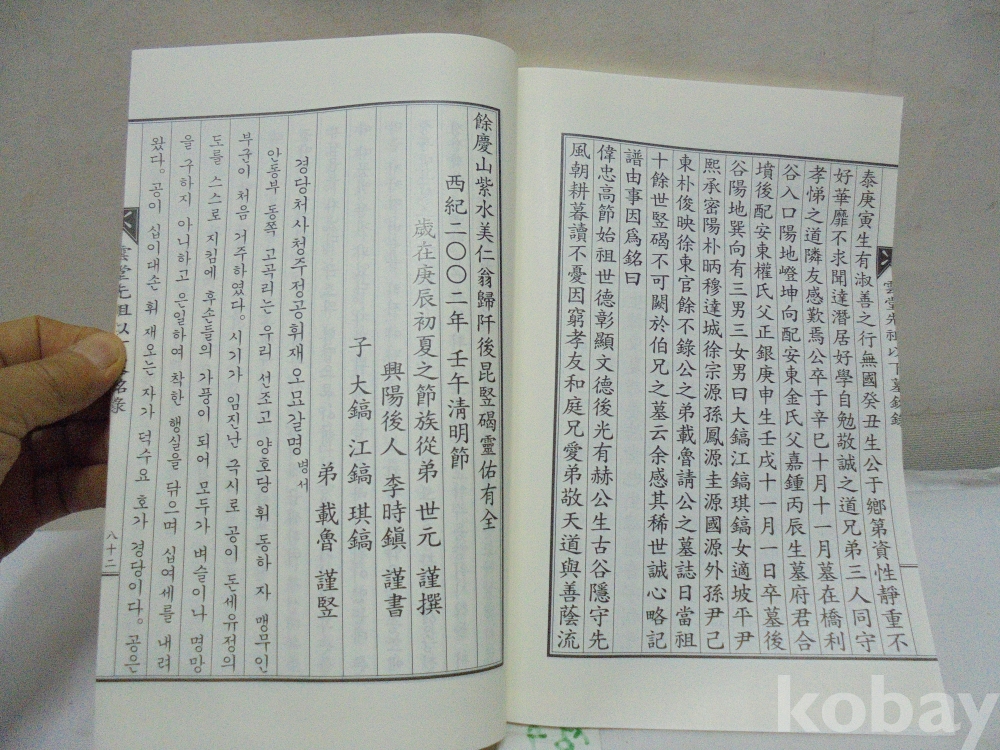 雲堂先祖以下墓銘錄
泰庚寅生有淑善之行無國癸丑生公于鄉第資性靜重不
好華靡不求聞達潛居好學自勉敬誠之道兄弟三人同守
孝悌之道隣友感歎焉公卒于辛巳十月十一月墓在橋利
谷入口陽地嶝坤向配安東金氏父嘉鍾丙辰生墓府君合
墳後配安東權氏父正銀庚申生壬戌十一月一日卒墓後
谷陽地巽向有三男三女男曰大鎬江鎬琪鎬女適坡平尹
熙承密陽朴昞穆達城徐宗源孫鳳源圭源國源外孫尹己
東朴俊映徐東官餘不錄公之弟載魯請公之墓誌日當祖
十餘世竪碣不可闕於伯兄之墓云余感其稀世誠心略記
譜由事因爲銘曰
偉忠高節始祖世德彰顯文德後光有赫公生古谷隱守先
風朝耕暮讀不憂因窮孝友和庭兄愛弟敬天道與善蔭流
餘慶山紫水美仁翁歸阡後昆竪碣靈佑有全
西紀二〇〇二年 壬午淸明節
歲在庚辰初夏之節族從弟 世元 謹撰
興陽後人 李時鎭 謹書
子 大鎬 江鎬 琪鎬
弟 載魯 謹竪
경당처사청주정공휘재오묘갈명 병서
안동부 동쪽 고곡리는 우리 선조고 양호당 휘 동하 자 맹무인
부군이 처음 거주하였다. 시기가 임진난 극시로 공이 돈세유정의
도를 스스로 지킴에 후손들의 가풍이 되어 모두가 벼슬이나 명망
을 구하지 아니하고 은일하여 착한 행실을 닦으며 십여세를 내려
왔다. 공이 십이대손 휘 재오는 자가 덕수요 호가 경당이다. 공은
雲堂先祖以 名錄
八十二
kobay